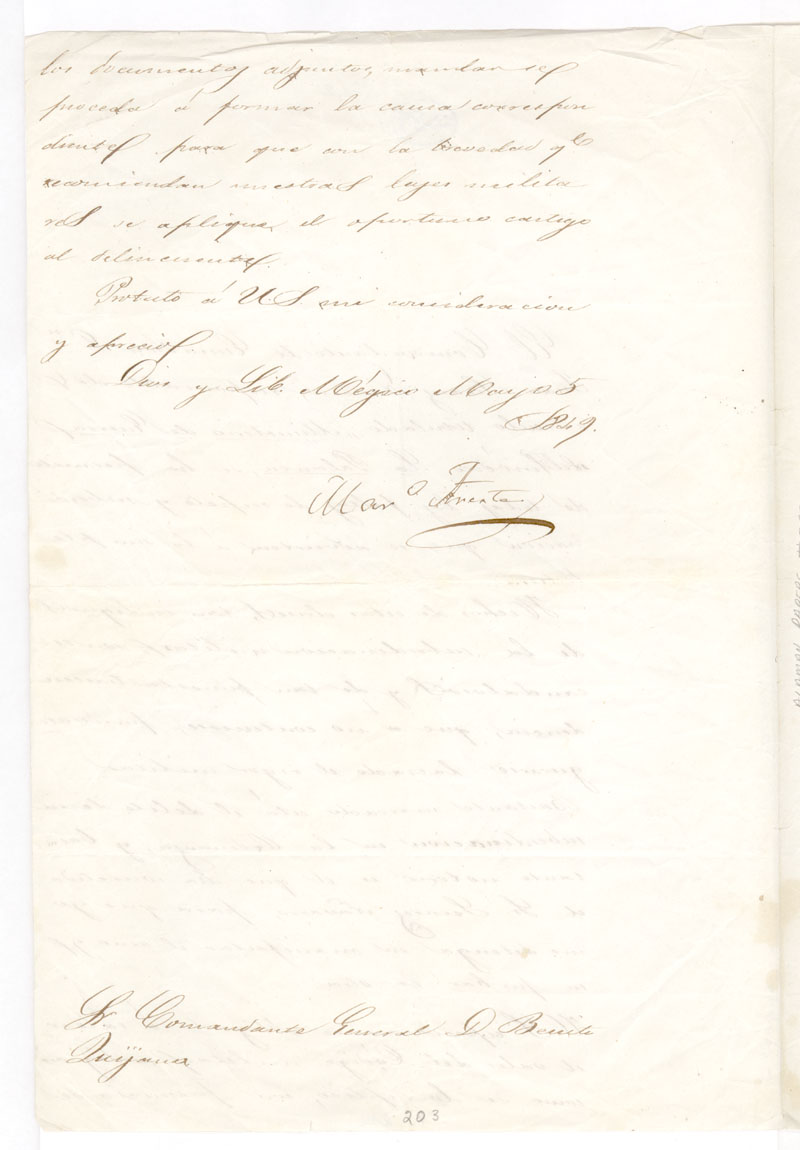 los documentos adjuntos, mandar se
proceda á formar la causa correspon
diente para que con la brevedad qe
recomiendan nuestras leyes milita
res se aplique el oportuno castigo
al delincuente.
Protesto á U.S. mi consideracion
y aprecio
Dios y Lib. Mégico Mayo 5
1849.
Maro
Sr. Comandante General D. Benito
Quijano
203